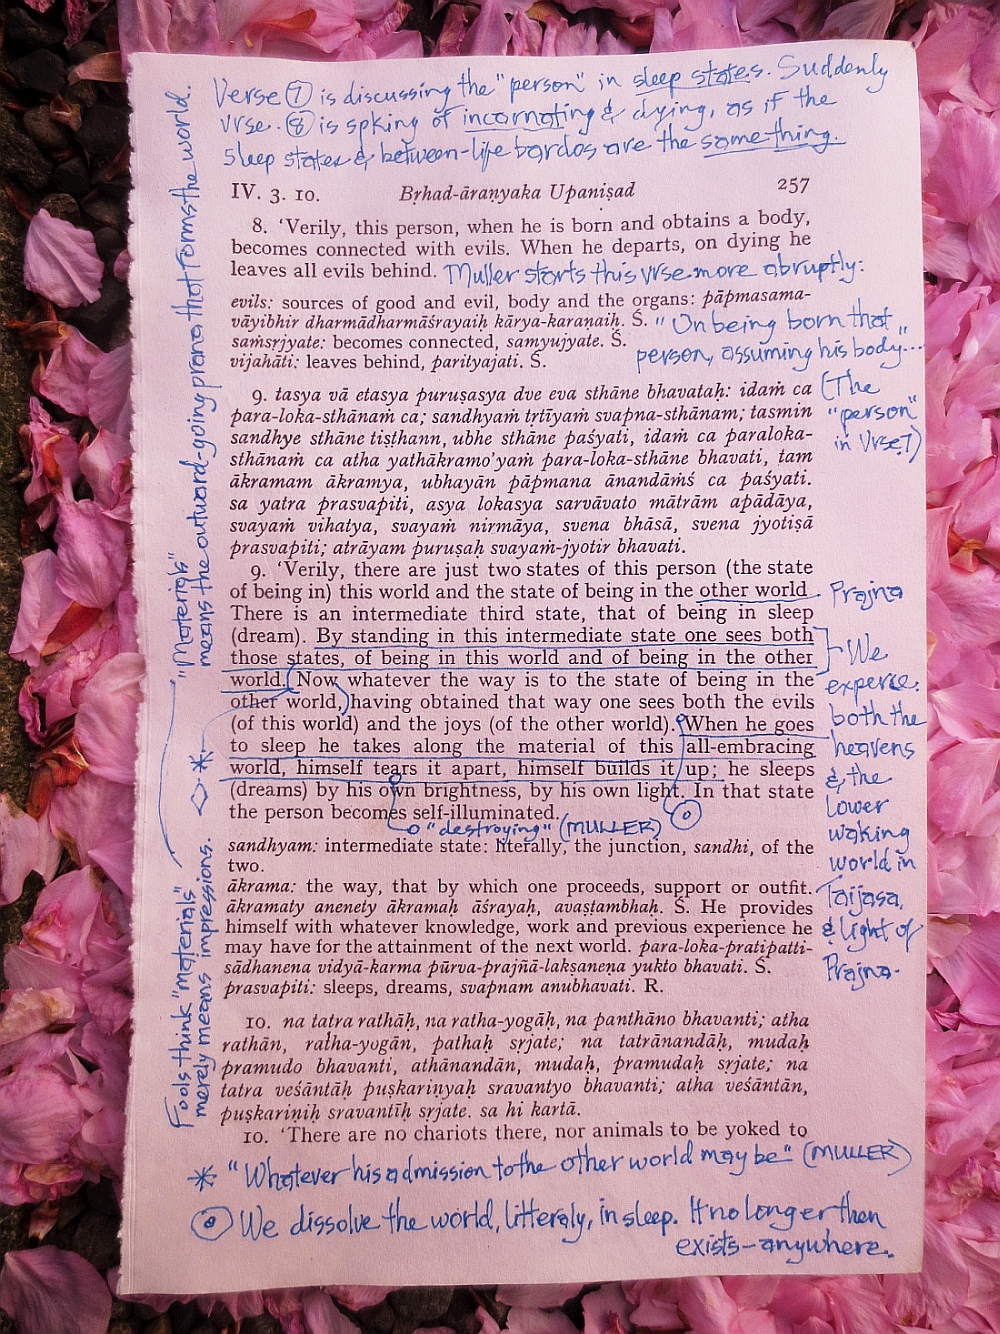 Verse 7 is discussing the "person" in sleep states. Suddenly
vrse. 8 is spking of incarnating & dying, as if the
sleep states & between-life bardos are the same thing.
IV. 3. 10. Bṛhad-āraṇyaka Upaniṣad 257
8. 'Verily, this person, when he is born and obtains a body,
becomes connected with evils. When he departs, on dying he
leaves all evils behind. Muller starts this vrse more abruptly:
evils: sources of good and evil, body and the organs: pāpmasama-
vāyibhir dharmādharmāśrayaiḥ kārya-karaṇaiḥ. Ś. "On being born that
saṁsṛjyate: becomes connected, saṃyujyate. Ś. person, assuming his body..."
vijahāti: leaves behind, parityajati. Ś.
(The
"person"
in Vrse 7)
9. tasya vā etasya puruṣasya dve eva sthāne bhavataḥ: idaṁ ca
para-loka-sthānaṁ ca; sandhyaṁ tṛtīyaṁ svapna-sthānam; tasmin
sandhye sthāne tiṣṭhann, ubhe sthāne paśyati, idaṁ ca paraloka-
sthānaṁ ca atha yathākramo'yaṁ para-loka-sthāne bhavati, tam
ākramam ākramya, ubhayān pāpmana ānandāṁś ca paśyati.
sa yatra prasvapiti, asya lokasya sarvāvato mātrām apādāya,
svayaṁ vihatya, svayaṁ nirmāya, svena bhāsā, svena jyotiṣā
prasvapiti; atrāyam puruṣaḥ svayaṁ-jyotir bhavati.
9. 'Verily, there are just two states of this person (the state
of being in) this world and the state of being in the other world.
There is an intermediate third state, that of being in sleep
(dream). By standing in this intermediate state one sees both
those states, of being in this world and of being in the other
world. Now whatever the way is to the state of being in the
other world, having obtained that way one sees both the evils
(of this world) and the joys (of the other world). When he goes
to sleep he takes along the material of this all-embracing
world, himself tears it apart, himself builds it up; he sleeps
(dreams) by his own brightness, by his own light. In that state
the person becomes self-illuminated.
"destroying" (MULLER)
Prajna
We
experce.
both the
heavens
& the
lower
waking
world in
Taijasa,
& light of
Prajna.
sandhyam: intermediate state: literally, the junction, sandhi, of the
two.
ākrama: the way, that by which one proceeds, support or outfit.
ākramaty anenety ākramaḥ āśrayaḥ, avaṣṭambhaḥ. Ś. He provides
himself with whatever knowledge, work and previous experience he
may have for the attainment of the next world. para-loka-pratipatti-
sādhanena vidyā-karma pūrva-prajñā-lakṣaṇeṇa yukto bhavati. Ś.
prasvapiti: sleeps, dreams, svapnam anubhavati. R.
10. na tatra rathāḥ, na ratha-yogāḥ, na panthāno bhavanti; atha
rathān, ratha-yogān, pathaḥ sṛjate; na tatrānandāḥ, mudaḥ
pramudo bhavanti, athānandān, mudaḥ, pramudaḥ sṛjate; na
tatra veśāntāḥ puṣkariṇyaḥ sravantyo bhavanti; atha veśāntān,
puṣkariṇīḥ sravantīḥ sṛjate. sa hi kartā.
10. 'There are no chariots there, nor animals to be yoked to
* "Whatever his admission to the other world may be" (MULLER)
We dissolve the world, litteraly, in sleep. It no longer then
exists-anywhere.
Fools think "materials"
merely means impressions.
"Materials"
means the outward-going prana that forms the world.